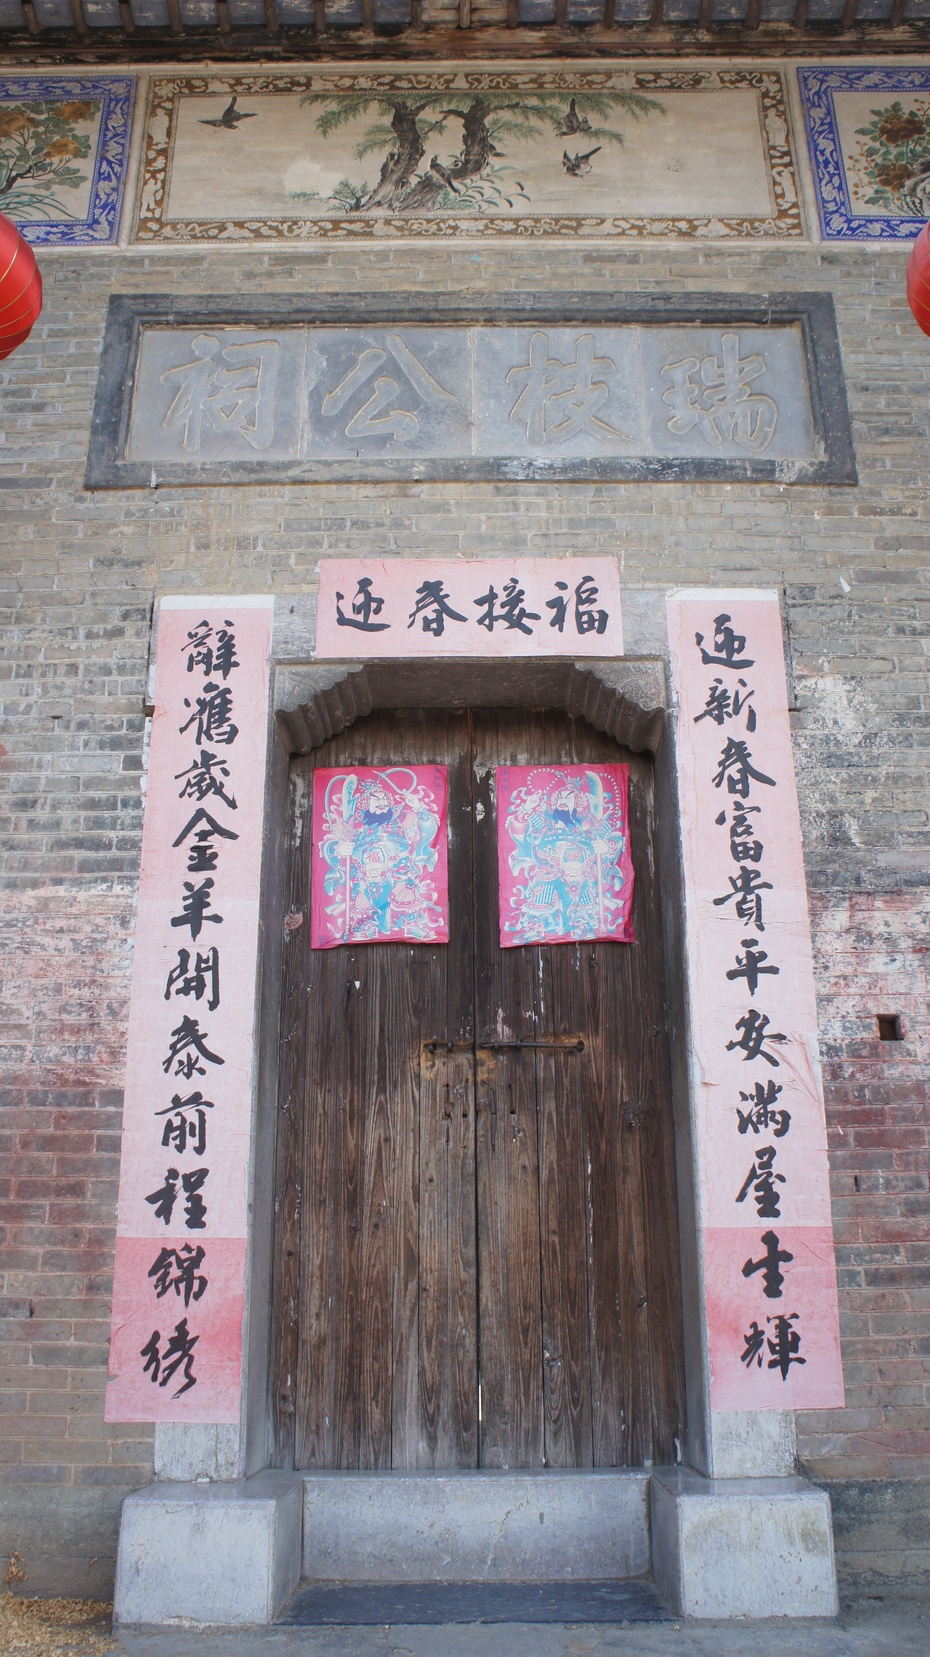 瑞枝公祠
迎春接福
辭舊歲金羊開泰前程錦綉
迎新春富貴平安滿屋生輝